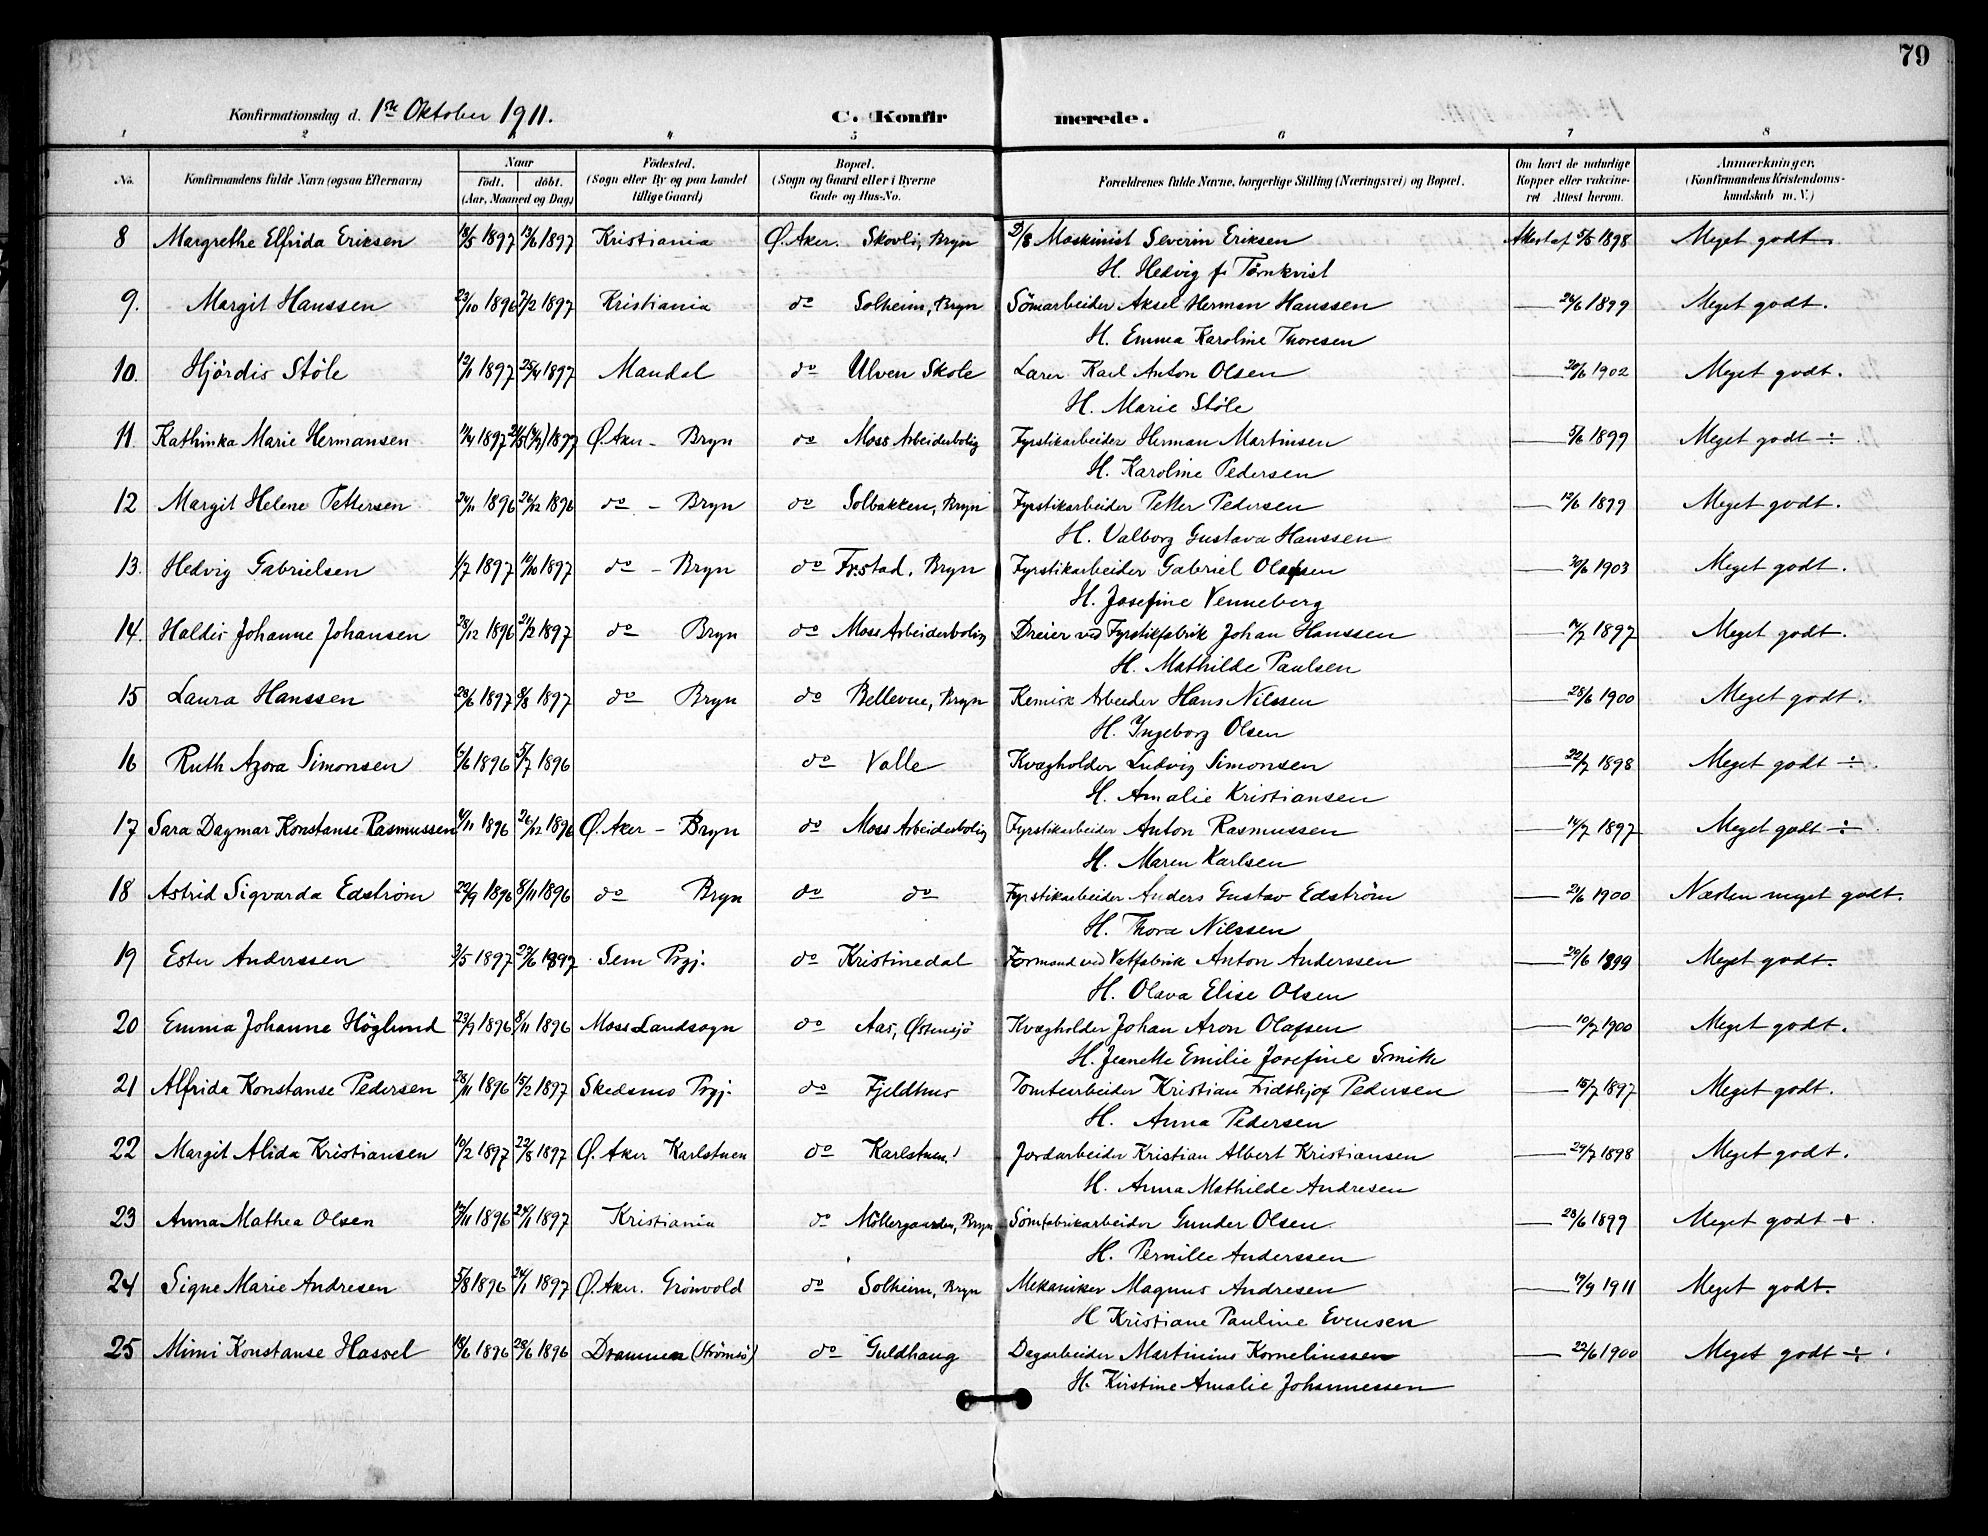 79
Konfirmationsdag d. 1ste Oktober 1911. C. Konfirmerede.
1 2 3 4 5 6 7 8
No. Konfirmandens fulde Navn (ogsaa Efternavn) Naar födt. döbt. (Aar, Maaned og Dag) Födested. (Sogn eller By og paa Landet tillige Gaard) Bopæl. (Sogn og Gaard eller i Byerne Gade og Hus-No. Forældrenes fulde Navne, borgerlige Stilling (Næringsvei) og Bopæl. Om havt de naturlige Kopper eller vaccineret Attest herom. Anmærkninger. (Konfirmandens Kristendomskundskab m. V.)
8 Margrethe Elfrida Eriksen 18/5 1897 13/6 1897 Kristiania Ø. Aker. Skovli, Bryn Maskinist Severin Eriksen 5/5 1898 Meget godt.
H. Hedvig f. Törnkvist
9. Margit Hanssen 23/10 1896 7/2 1897 Kristiania do Solheim, Bryn Sömarbeider Aksel Herman Hanssen — 24/6 1899 Meget godt.
H. Emma Karoline Thoresen
10. Hjördis Stöle 12/1 1897 25/4 1897 Mandal do Ulven Skole Lærer Karl Anton Olsen — 20/6 1902 Meget godt.
H. Marie Stöle
11. Kathinka Marie Hermansen 1897 1897 Ø. Aker - Bryn do Moss Arbeiderbolig Fyrstikarbeider Herman Martinsen — 5/6 1899 Meget godt ÷.
H. Karoline Pedersen
12 Margit Helene Pettersen 24/11 1896 26/12 1896 do - Bryn do Solbakken, Bryn Fyrstikarbeider Petter Pedersen — 12/6 1899 Meget godt.
H. Valborg Gustava Hanssen
13. Hedvig Gabrielsen 1/7 1897 10/10 1897 do - Bryn do Fr.stad, Bryn Fyrstikarbeider Gabriel Olafsen — 30/6 1903 Meget godt.
H. Josefine Venneberg
14. Haldis Johanne Johansen 28/12 1896 21/2 1897 do Bryn do Moss Arbeiderbolig Dreier ved Fyrstikfabrik Johan Hanssen — 1897 Meget godt.
H. Mathilde Paulsen
15 Laura Hanssen 28/6 1897 8/8 1897 do Bryn do Bellevue, Bryn Kemisk Arbeider Hans Nilssen — 28/6 1900 Meget godt.
H. Ingeborg Olsen
16 Ruth Azora Simonsen 1896 5/7 1896 do Valle Kvægholder Ludvig Simonsen — 22/7 1898 Meget godt ÷.
H. Amalie Kristiansen
17 Sara Dagmar Konstanse Rasmussen 1896 26/12 1896 Ø. Aker - Bryn do Moss Arbeiderbolig Fyrstikarbeider Anton Rasmussen — 14/7 1897 Meget godt ÷.
H. Maren Karlsen
18 Astrid Sigvarda Edström 22/9 1896 8/11 1896 do Bryn do do Fyrstikarbeider Anders Gustav Edström — 21/6 1900 Næsten meget godt.
H. Thora Nilssen
19 Ester Anderssen 3/5 1897 27/6 1897 Sem Prgj. do Kristinedal Formand ved Vatfabrik Anton Anderssen — 29/6 1899 Meget godt.
H. Olava Elise Olsen
20 Emma Johanne Höglund 23/9 1896 8/11 1896 Moss Landsogn do Aas, Østensjö Kvægholder Johan Aron Olafsen — 10/7 1900 Meget godt.
H. Jeanette Emilie Josefine Smith
21 Alfrida Konstanse Pedersen 28/11 1896 15/2 1897 Skedsmo Prgj. do Fjeldhus Tomtearbeider Kristian Fridthjof Pedersen — 15/7 1897 Meget godt.
H. Anna Pedersen
22 Margit Alida Kristiansen 10/2 1897 22/8 1897 Ø. Aker Karlstuen do Karlstuen Jordarbeider Kristian Albert Kristiansen — 29/7 1898 Meget godt.
H. Anna Mathilde Andresen
23 Anna Mathea Olsen 17/11 1896 24/1 1897 Kristiania do Möllergaarden, Bryn Sömfabrikarbeider Gunder Olsen — 28/6 1899 Meget godt +.
H. Pernille Anderssen
24 Signe Marie Andresen 5/8 1896 24/1 1897 Ø. Aker. Grönvold do Solheim, Bryn Mekaniker Magnus Andresen — 19/9 1911 Meget godt.
H Kristiane Pauline Evensen
25 Mimi Konstanse Hassel 18/6 1896 28/6 1896 Drammen (Strömsö) do Guldhaug Dagarbeider Martinius Kornelinssen — 22/6 1900 Meget godt ÷.
H. Kirstine Amalie Johannessen